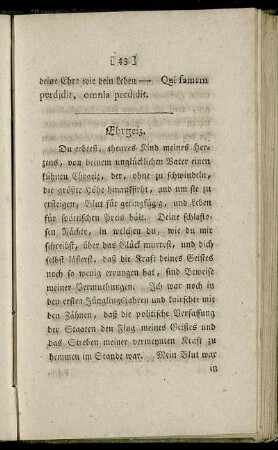 [ 43 ]
deine Ehre wie dein Leben — Qui famam
perdidit, omnia perdidit.
Ehrgeiz.
Du erbtest, theures Kind meines Her-
zens, von deinem unglücklichen Vater einen
kühnen Ehrgeiz, der, ohne zu schwindeln,
die größte Höhe hinaufsieht, und um sie zu
ersteigen, Blut für geringfügig, und Leben
für spöttischen Preis hält. Deine schlaflo-
sen Nächte, in welchen du, wie du mir
schreibst, über das Glück murrest, und dich
selbst lästerst, daß die Kraft deines Geistes
noch so wenig errungen hat, sind Beweise
meiner Vermuthungen. Ich war noch in
den ersten Jünglingsjahren und knirschte mit
den Zähnen, daß die politische Verfassung
der Staaten den Flug meines Geistes und
das Streben meiner vermeynten Kraft zu
hemmen im Stande war. Mein Blut war
in